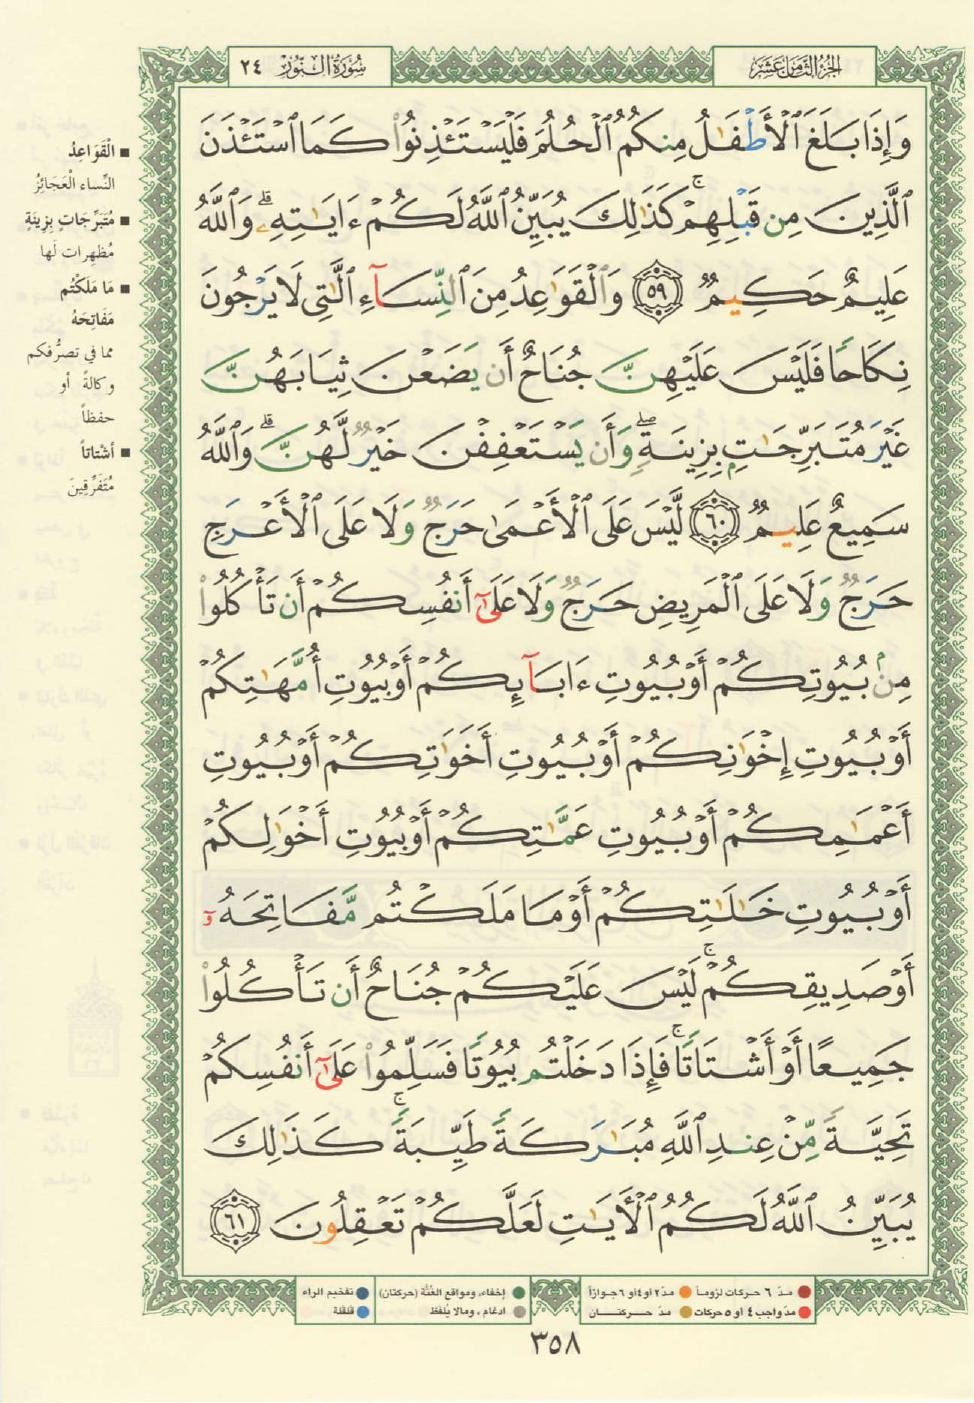 الجزء الثامن عشر
سورة النور ٢٤
وَإِذَا بَلَغَ ٱلْأَطْفَٰلُ مِنكُمُ ٱلْحُلُمَ فَلْيَسْتَـْٔذِنُوا۟ كَمَا ٱسْتَـْٔذَنَ
ٱلَّذِينَ مِن قَبْلِهِمْ ۚ كَذَٰلِكَ يُبَيِّنُ ٱللَّهُ لَكُمْ ءَايَٰتِهِۦ ۗ وَٱللَّهُ
عَلِيمٌ حَكِيمٌ ٥٩ وَٱلْقَوَٰعِدُ مِنَ ٱلنِّسَآءِ ٱلَّٰتِى لَا يَرْجُونَ
نِكَاحًا فَلَيْسَ عَلَيْهِنَّ جُنَاحٌ أَن يَضَعْنَ ثِيَابَهُنَّ
غَيْرَ مُتَبَرِّجَٰتٍۭ بِزِينَةٍ ۖ وَأَن يَسْتَعْفِفْنَ خَيْرٌ لَّهُنَّ ۗ وَٱللَّهُ
سَمِيعٌ عَلِيمٌ ٦٠ لَّيْسَ عَلَى ٱلْأَعْمَىٰ حَرَجٌ وَلَا عَلَى ٱلْأَعْرَجِ
حَرَجٌ وَلَا عَلَى ٱلْمَرِيضِ حَرَجٌ وَلَا عَلَىٰٓ أَنفُسِكُمْ أَن تَأْكُلُوا۟
مِنۢ بُيُوتِكُمْ أَوْ بُيُوتِ ءَابَآئِكُمْ أَوْ بُيُوتِ أُمَّهَٰتِكُمْ
أَوْ بُيُوتِ إِخْوَٰنِكُمْ أَوْ بُيُوتِ أَخَوَٰتِكُمْ أَوْ بُيُوتِ
أَعْمَٰمِكُمْ أَوْ بُيُوتِ عَمَّٰتِكُمْ أَوْ بُيُوتِ أَخْوَٰلِكُمْ
أَوْ بُيُوتِ خَٰلَٰتِكُمْ أَوْ مَا مَلَكْتُم مَّفَاتِحَهُۥٓ
أَوْ صَدِيقِكُمْ ۚ لَيْسَ عَلَيْكُمْ جُنَاحٌ أَن تَأْكُلُوا۟
جَمِيعًا أَوْ أَشْتَاتًا ۚ فَإِذَا دَخَلْتُم بُيُوتًا فَسَلِّمُوا۟ عَلَىٰٓ أَنفُسِكُمْ
تَحِيَّةً مِّنْ عِندِ ٱللَّهِ مُبَٰرَكَةً طَيِّبَةً ۚ كَذَٰلِكَ
يُبَيِّنُ ٱللَّهُ لَكُمُ ٱلْءَايَٰتِ لَعَلَّكُمْ تَعْقِلُونَ ٦١
■ الْقَوَاعِدُ
النِّساء الْعَجَائِزُ
■ مُتَبَرِّجَاتٍ بِزِينَةٍ
مُظهِرات لَها
■ مَا مَلَكْتُم
مَفَاتِحَهُ
مما في تصرُّفكم
وكالةً أو
حفظاً
■ أَشْتاتاً
مُتَفَرِّقِينَ
مدّ ٦ حركات لزوماً
مدّ ٢ أو ٤ أو ٦ جوازاً
إخفاء، ومواقع الغنّة (حركتان)
تفخيم الراء
مدّ واجب ٤ أو ٥ حركات
مدّ حركتان
ادغام، ومالا يُلفظ
قلقلة
٣٥٨